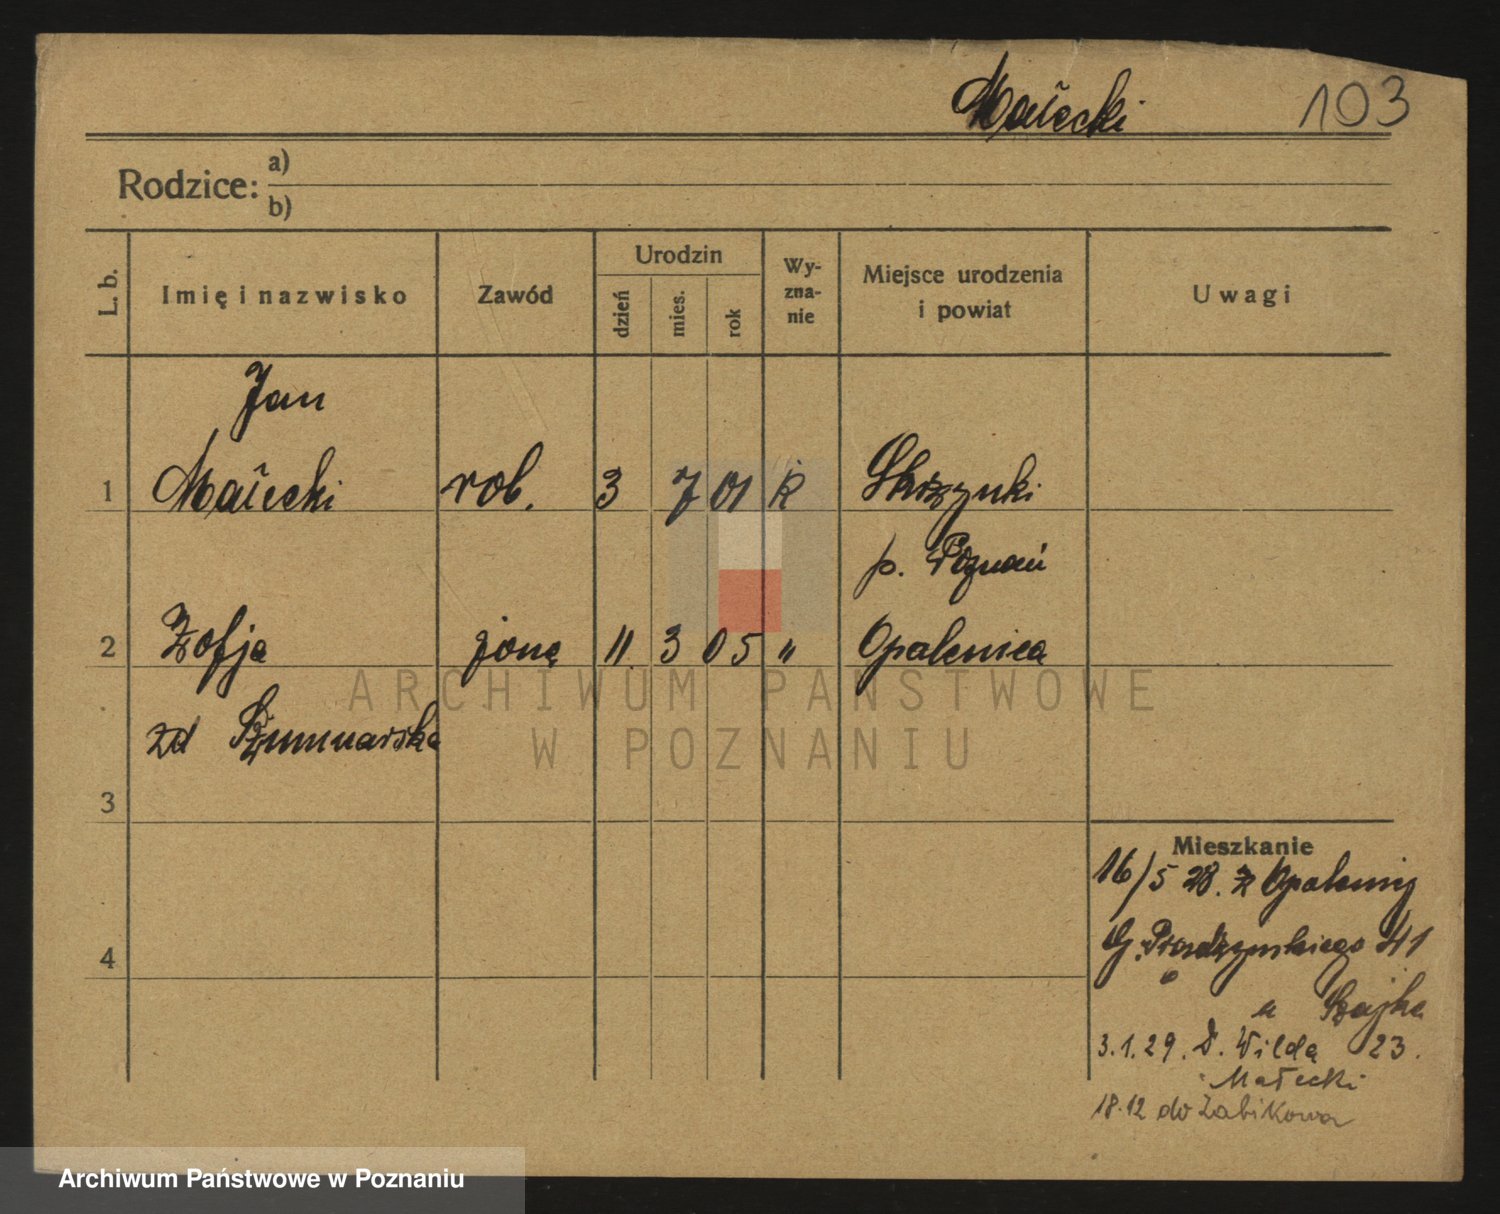 Małecki 103
Rodzice: a)
b)
L. b. Imię i nazwisko Zawód Urodzin dzień mies. rok Wy-zna-nie Miejsce urodzenia i powiat Uwagi
Jan
1 Małecki rob. 3 7 01 k Skrzynki
p. Poznań
2 Zofja żona 11 3 05 " Opalenica
zd Szumnarska
3
4
Mieszkanie
16/5 28. z Opalenicy
G. Prądzyńskiego 41
u Szajka
3.1.29. D. Wilda 23.
Małecki
18.12 do Żabikowa
ARCHIWUM PAŃSTWOWE
W POZNANIU
Archiwum Państwowe w Poznaniu